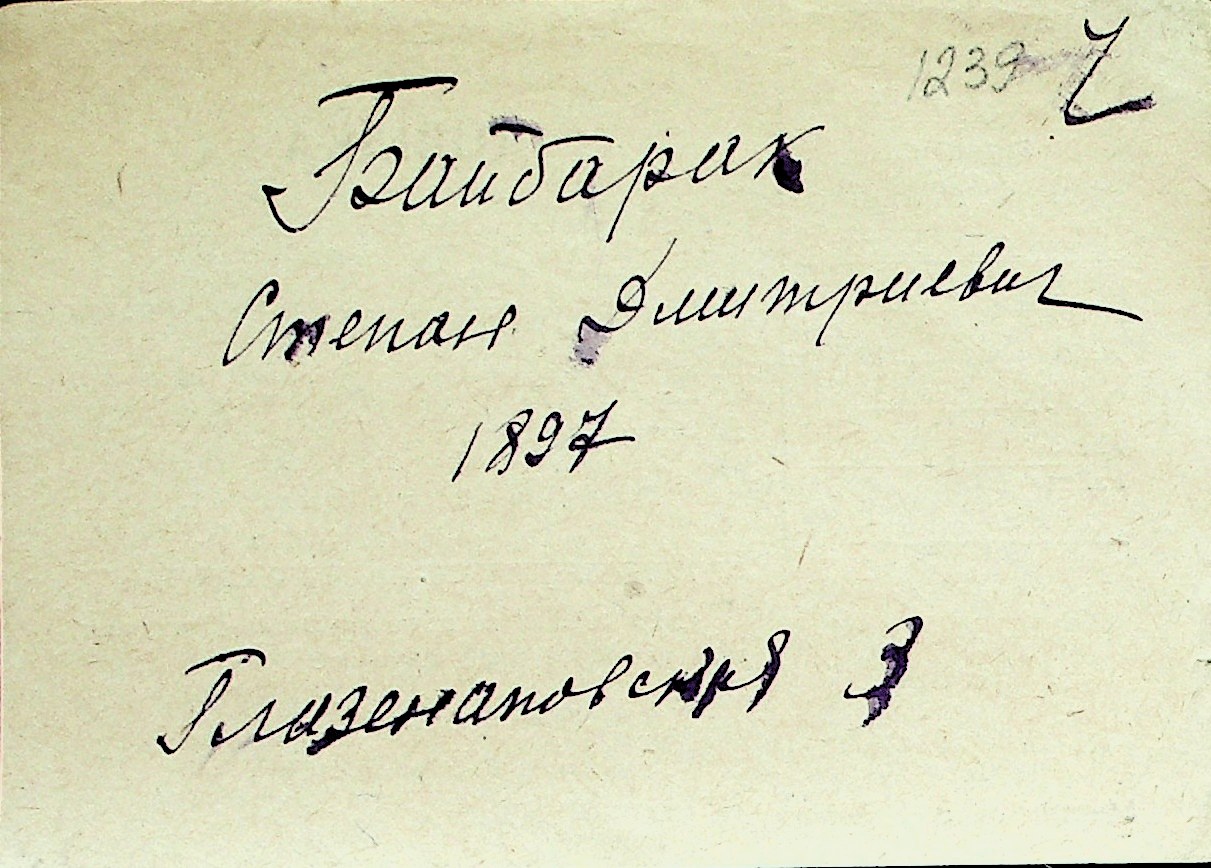 1239 7
Байбарак
Степан Дмитриевич
1897
Глазенаповская 3